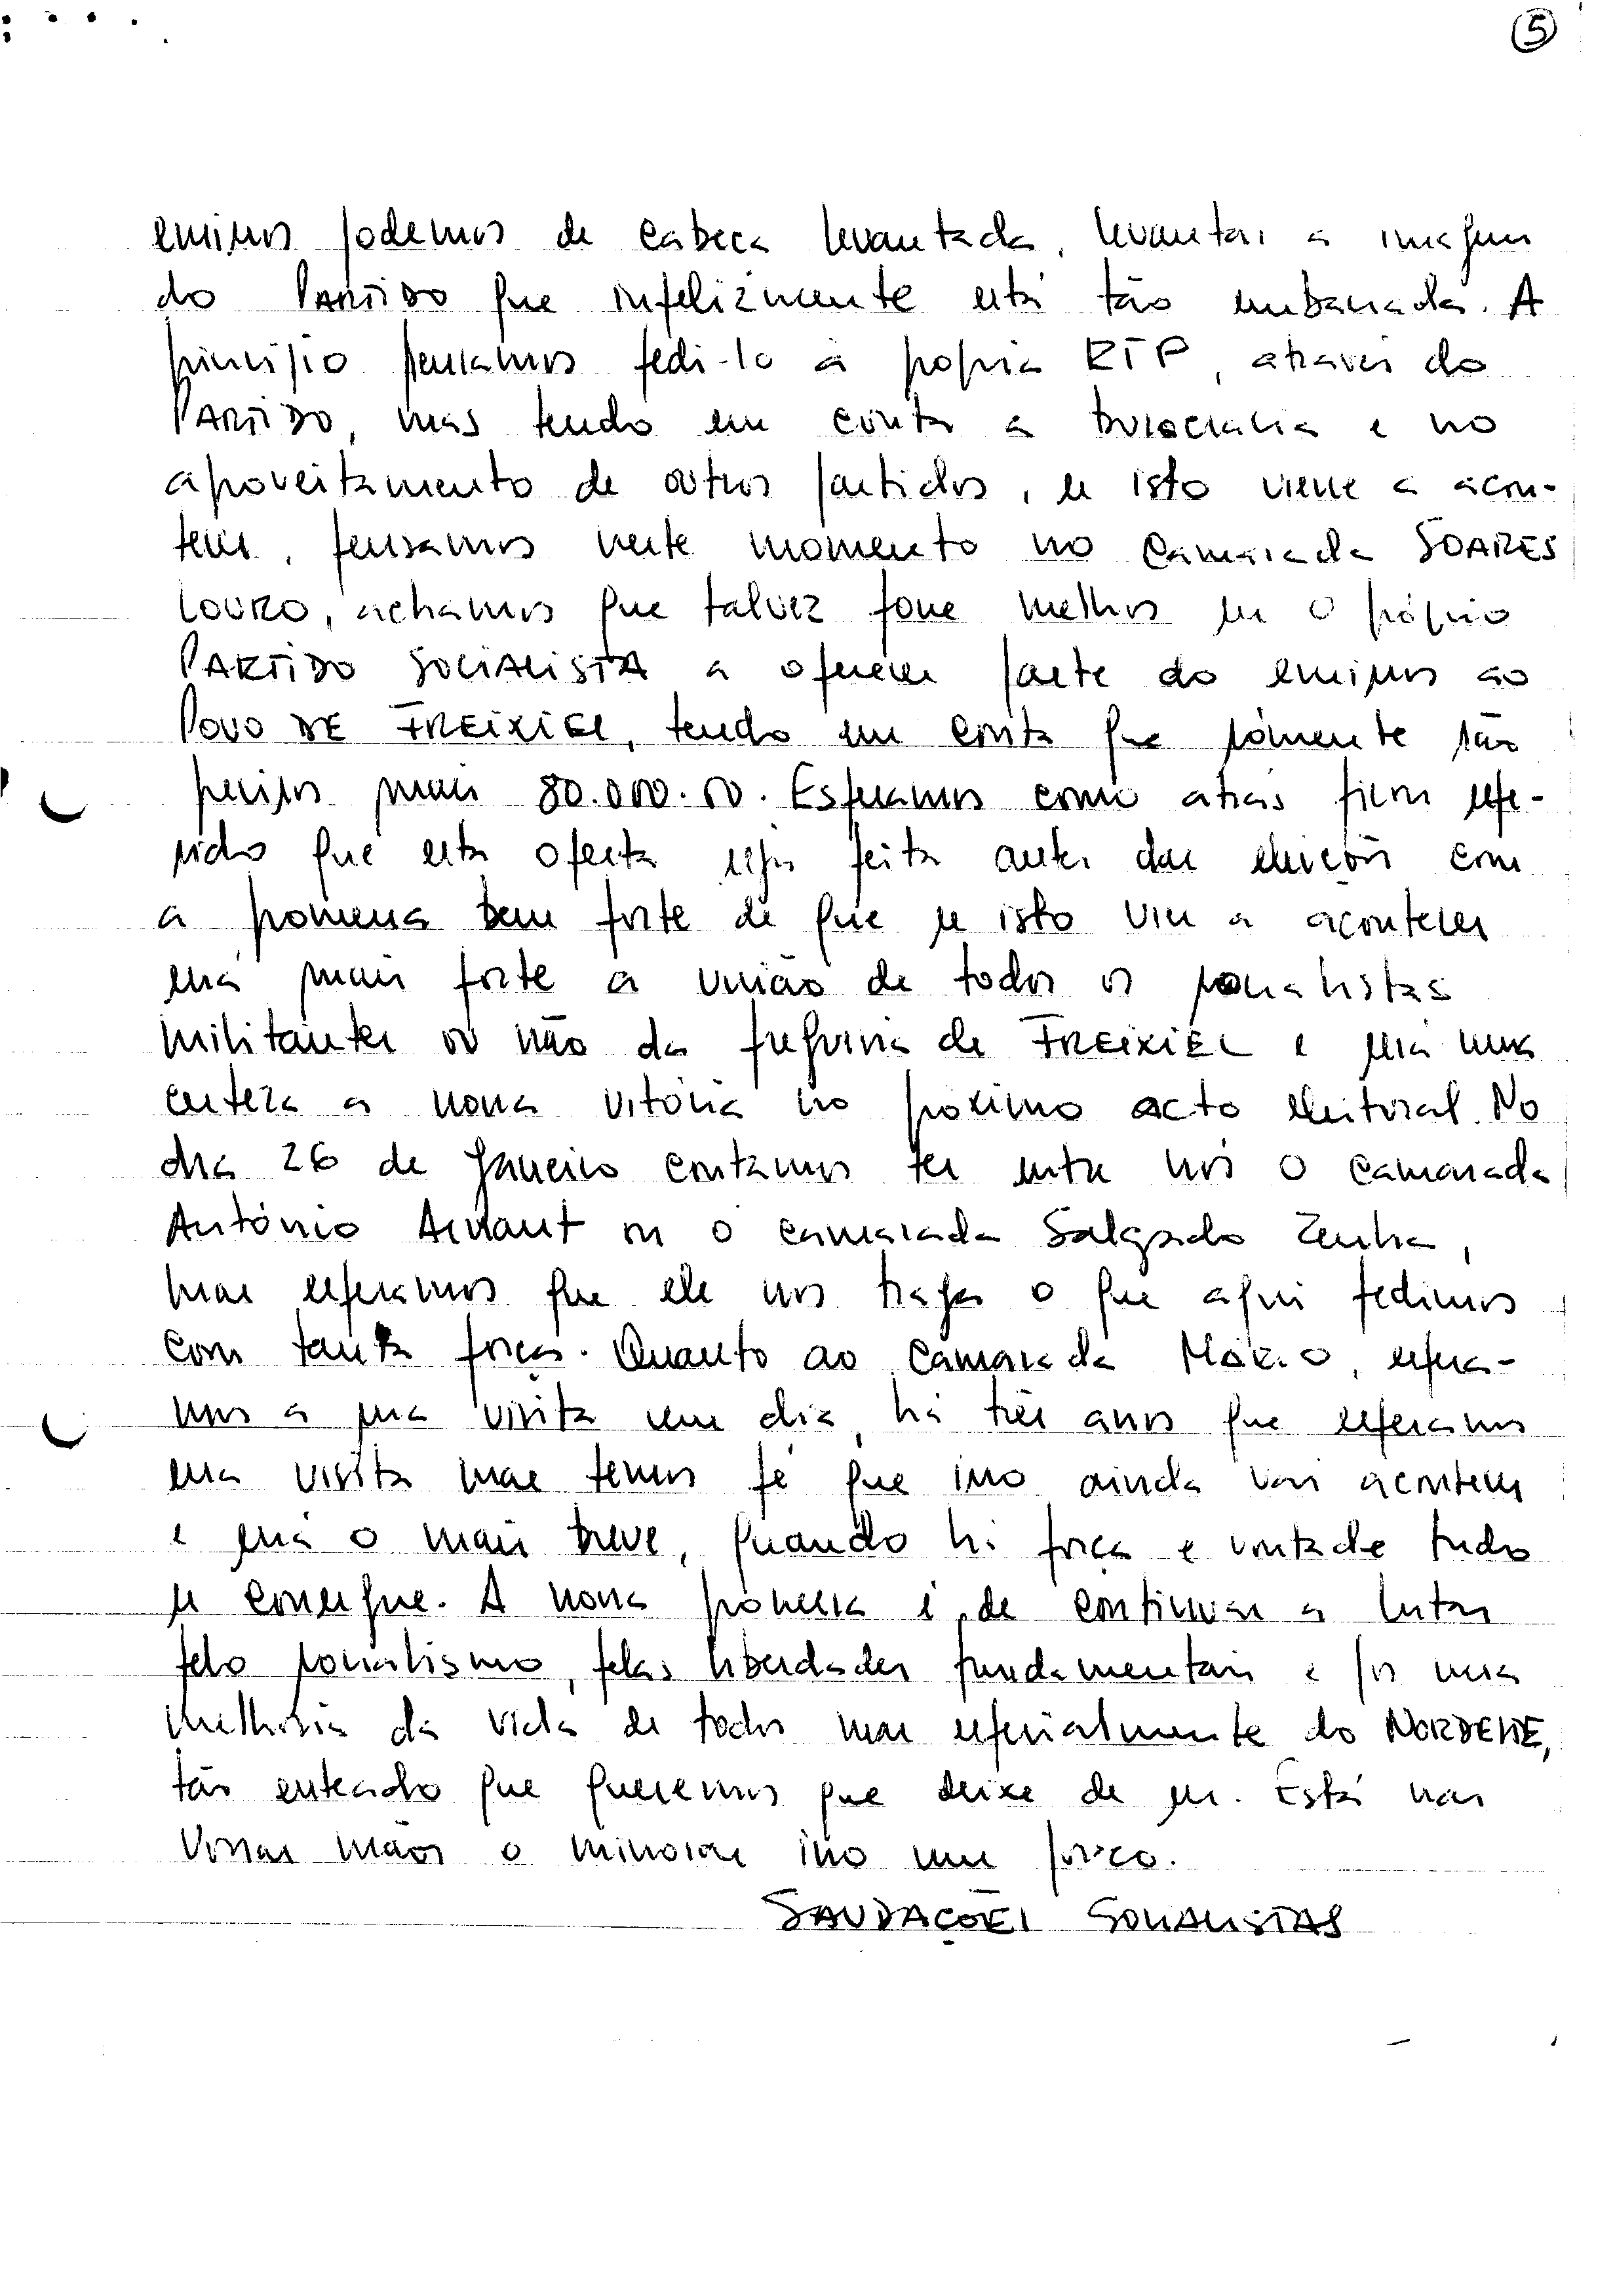 5
emissor podemos de cabeça levantada, levantar a imagem
do PARTIDO que infelizmente está tão embaciada. A
principio pensamos pedi-lo à propria RTP, através do
PARTIDO, mas tendo em conta a burocracia e no
aproveitamento de outros partidos, se isto viesse a acon-
tecer, pensamos neste momento no camarada SOARES
LOURO, achamos que talvez fosse melhor ser o próprio
PARTIDO SOCIALISTA a oferecer parte do emissor ao
POVO DE FREIXIEL, tendo em conta que sómente são
precisos mais 80.000.00. Esperamos como atrás ficou refe-
rido que esta oferta seja feita antes das eleições com
a promessa bem forte de que se isto vier a acontecer
será mais forte a união de todos os socialistas
militantes ou não da freguesia de FREIXIEL e será uma
certeza a nossa vitória no próximo acto eleitoral. No
dia 26 de Janeiro contamos ter entre nós o camarada
António Arnaut ou o camarada Salgado Zenha,
mas esperamos que ele nos traga o que aqui pedimos
com tanta força. Quanto ao camarada MÁRIO, espera-
mos a sua visita um dia, há três anos que esperamos
essa visita mas temos fé que isso ainda vai acontecer
e será o mais breve, quando há força e vontade tudo
se consegue. A nossa promessa é de continuar a lutar
pelo socialismo, pelas liberdades fundamentais e por uma
melhoria da vida de todos mas especialmente do NORDESTE,
tão enteado que queremos que deixe de ser. Está nas
vossas mãos o minorar isso um pouco.
SAUDAÇÕES SOCIALISTAS